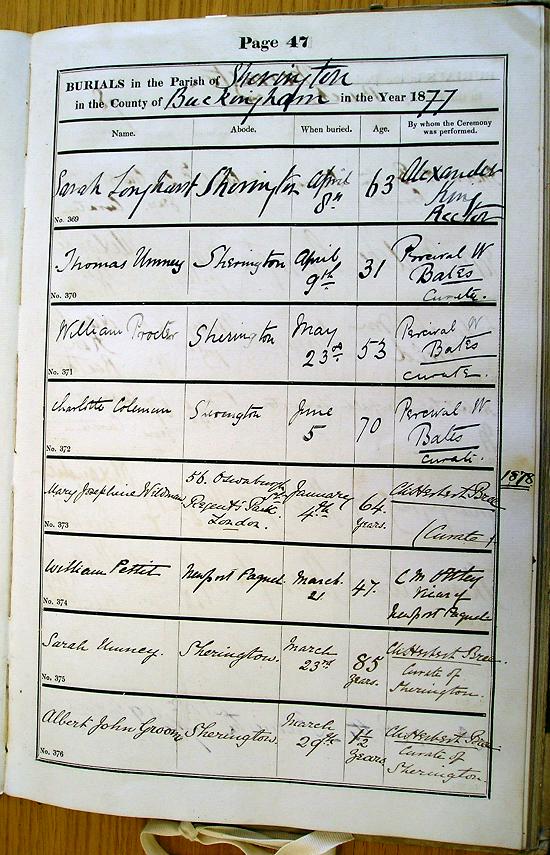 Page 47
BURIALS in the Parish of Sherington
in the County of Buckingham in the Year 1877
Name. Abode. When buried. Age. By whom the Ceremony was performed.
Sarah Longhurst Sherington April 8th 63 Alexander King Rector
No. 369
Thomas Umney Sherington April 9th 31 Percival W Bates Curate.
No. 370
William Procter Sherington May 23rd 53 Percival W Bates curate.
No. 371
Charlotte Coleman Sherington June 5 70 Percival W Bates curate.
No. 372
1878
Mary Josephine 56. Osnaburgh St Regent's Park London. January 4th 64 Years. Herbert (Curate)
No. 373
William Pettit Newport Pagnel March 21 47. C M Ottley Vicar Newport Pagnel
No. 374
Sarah Umney. Sherington. March 23rd 85 Years. Herbert Curate of Sherington.
No. 375
Albert John Groom Sherington. March 29th 1½ Years Herbert Curate of Sherington.
No. 376